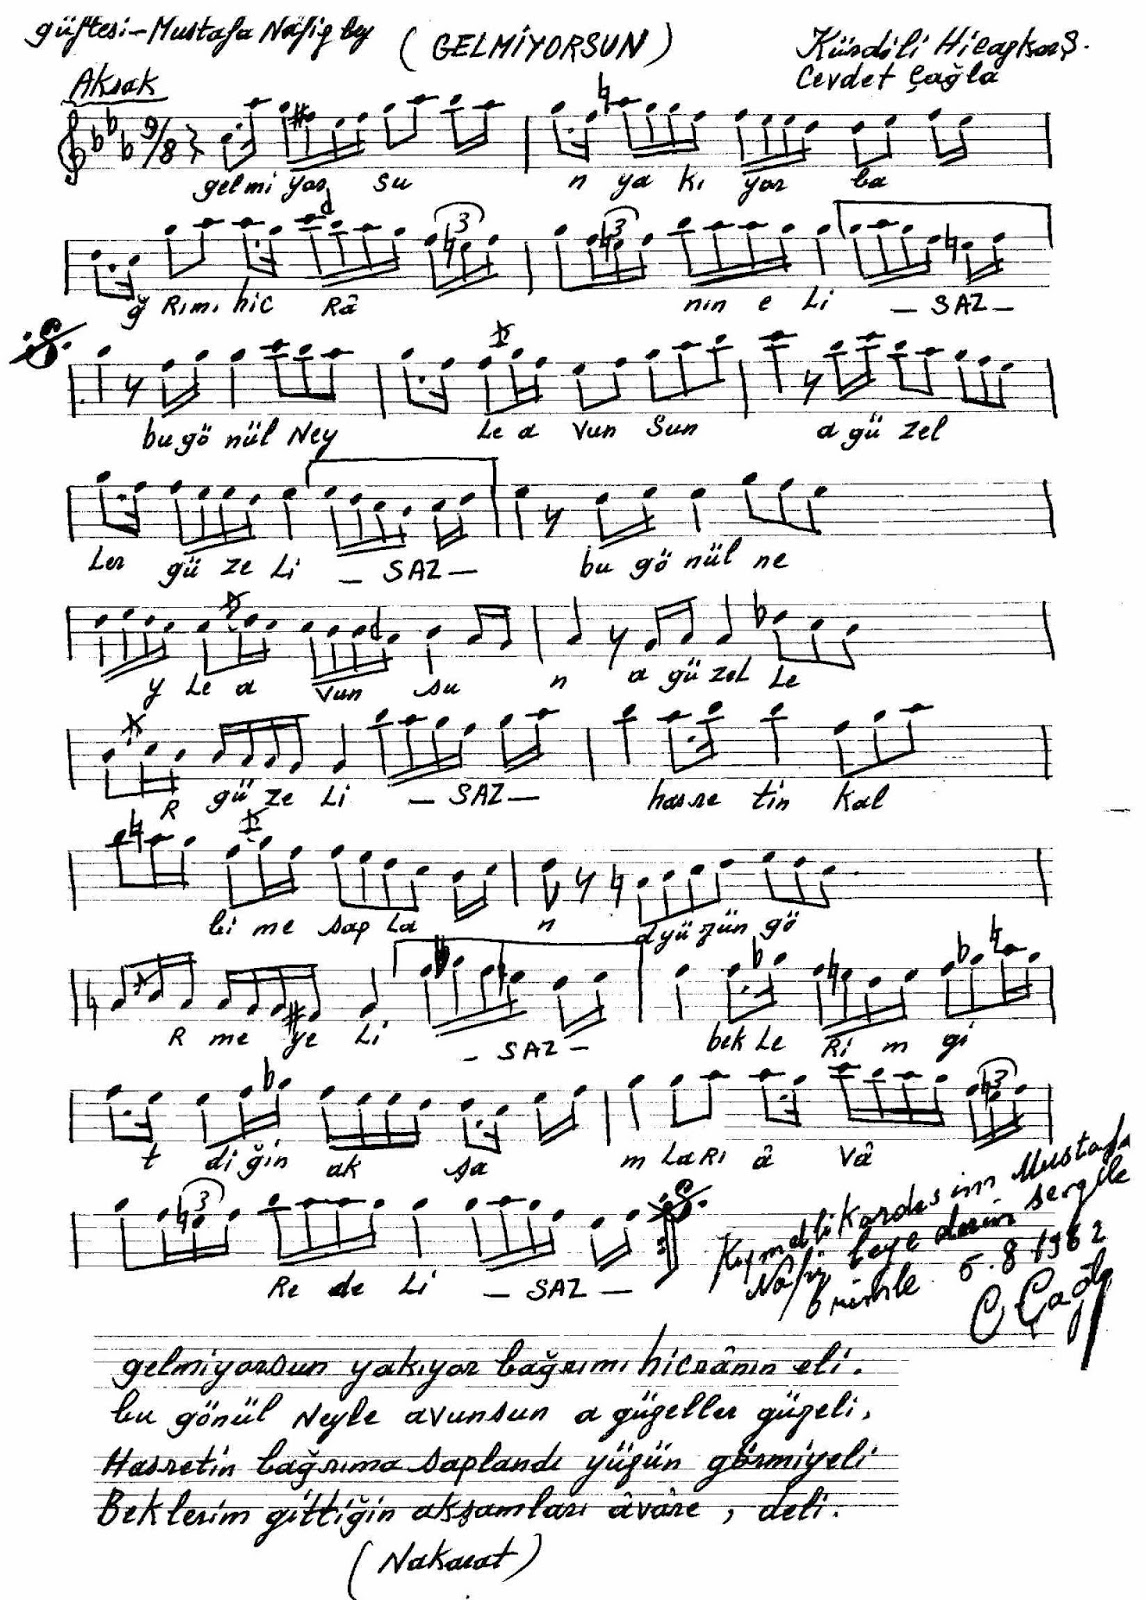 güftesi - Mustafa Nâfiq bey (GELMİYORSUN) Kürdili Hicazkârş.
Aksak Cevdet Çağla
9/8
gel mi yor su n ya kı yor ba
3 3
ğ Rımı hic Râ nın e Li - SAZ -
bu gö nül Ney Le a vun Sun a gü zel
Ler gü ze Li - SAZ - bu gö nül ne
y Le a vun su n a gü zeL Le
R gü ze Li - SAZ - hasre tin kal
bi me sap La n dyü zün gö
R me ye Li - SAZ - bek Le Ri m gi
3
t di ğin ak şa m LaRı â Vâ
3
Re de Li - SAZ -
Kıymetli Kardeşim Mustafa
Nâfiz beye derin sevgile
rimle 5.8.1962
C Çağla
gelmiyorsun yakıyor bağrımı hicrânın eli.
bu gönül Neyle avunsun a güzeller güzeli,
Hasretin bağrıma saplandı yüzün görmiyeli
Beklerim gittiğin akşamları âvâre, deli.
(Nakarat)